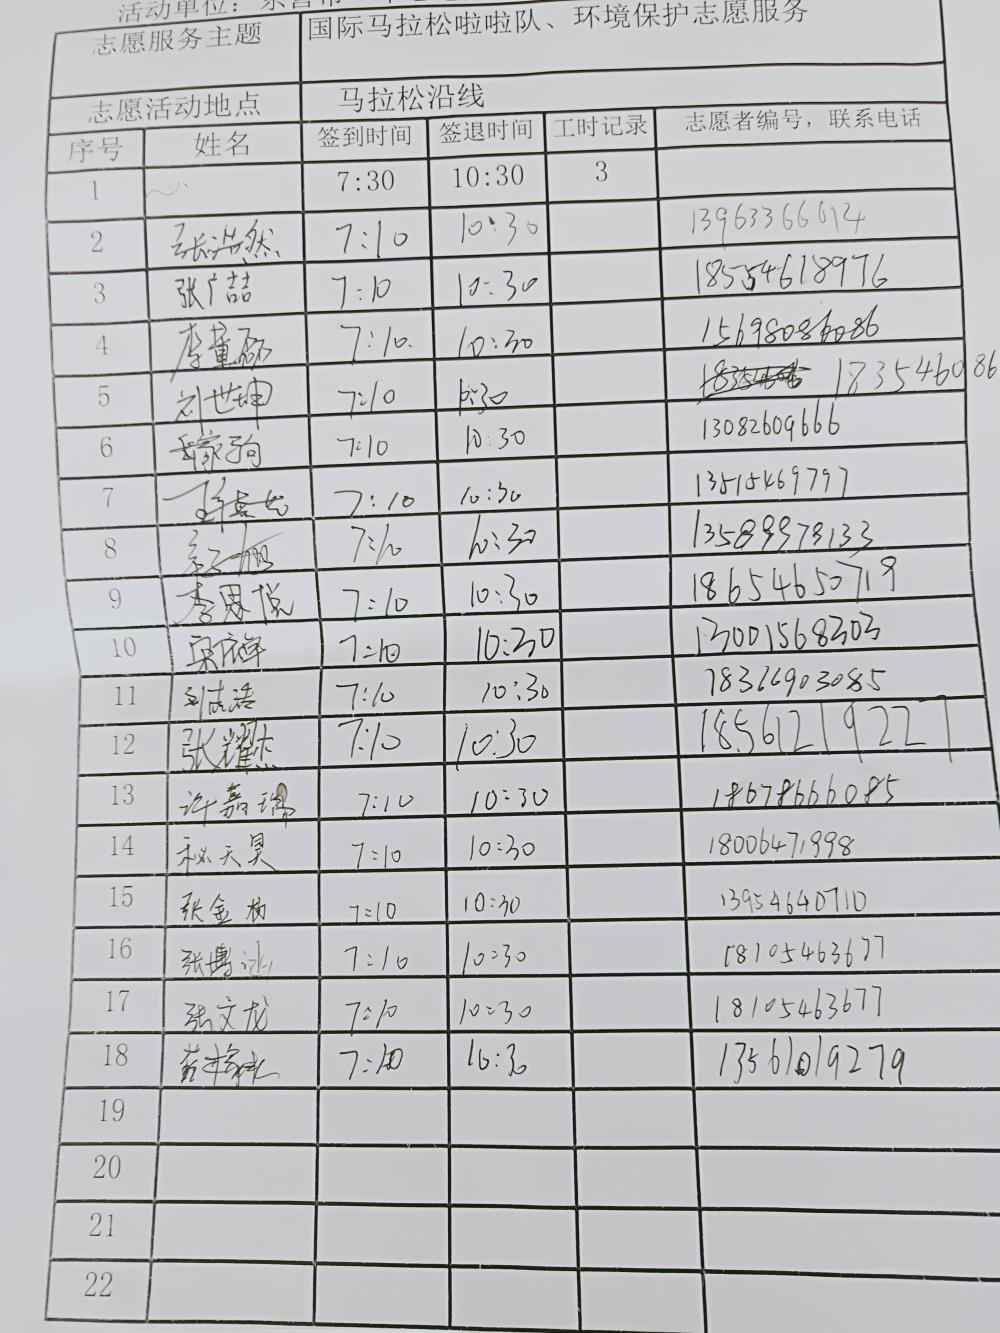 活动单位：东营市
志愿服务主题 国际马拉松啦啦队、环境保护志愿服务
志愿活动地点 马拉松沿线
序号 姓名 签到时间 签退时间 工时记录 志愿者编号，联系电话
1 7:30 10:30 3
2 张浩然 7:10 10:30 13963366614
3 张广喆 7:10 10:30 18554618976
4 李董磊 7:10 10:30 15698086086
5 刘世坤 7:10 10:30 183546086
6 7:10 10:30 13082609666
7 7:10 10:30 13515469797
8 7:10 10:30 13589978133
9 李思悦 7:10 10:30 18654650719
10 7:10 10:30 13001568303
11 刘志浩 7:10 10:30 18366903085
12 张耀杰 7:10 10:30 18561219227
13 许嘉瑞 7:10 10:30 18678666085
14 秘天昊 7:10 10:30 18006471998
15 张金 7:10 10:30 13954640710
16 张博涵 7:10 10:30 18105463677
17 张文龙 7:10 10:30 18105463677
18 7:10 10:30 13561019279
19
20
21
22